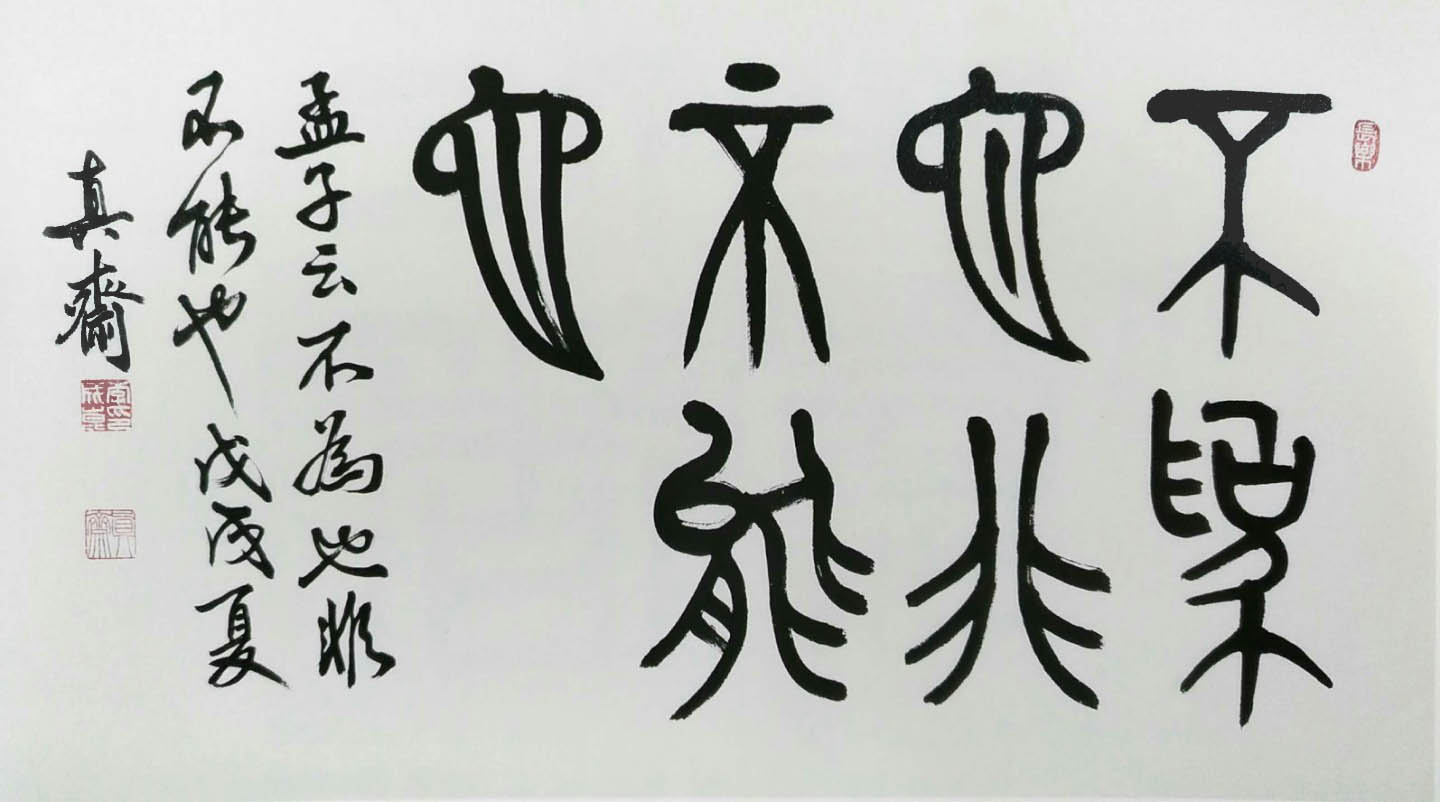 長樂
不為
也非
不能
也
孟子云不為也非
不能也戊戌夏
真齋
真齋